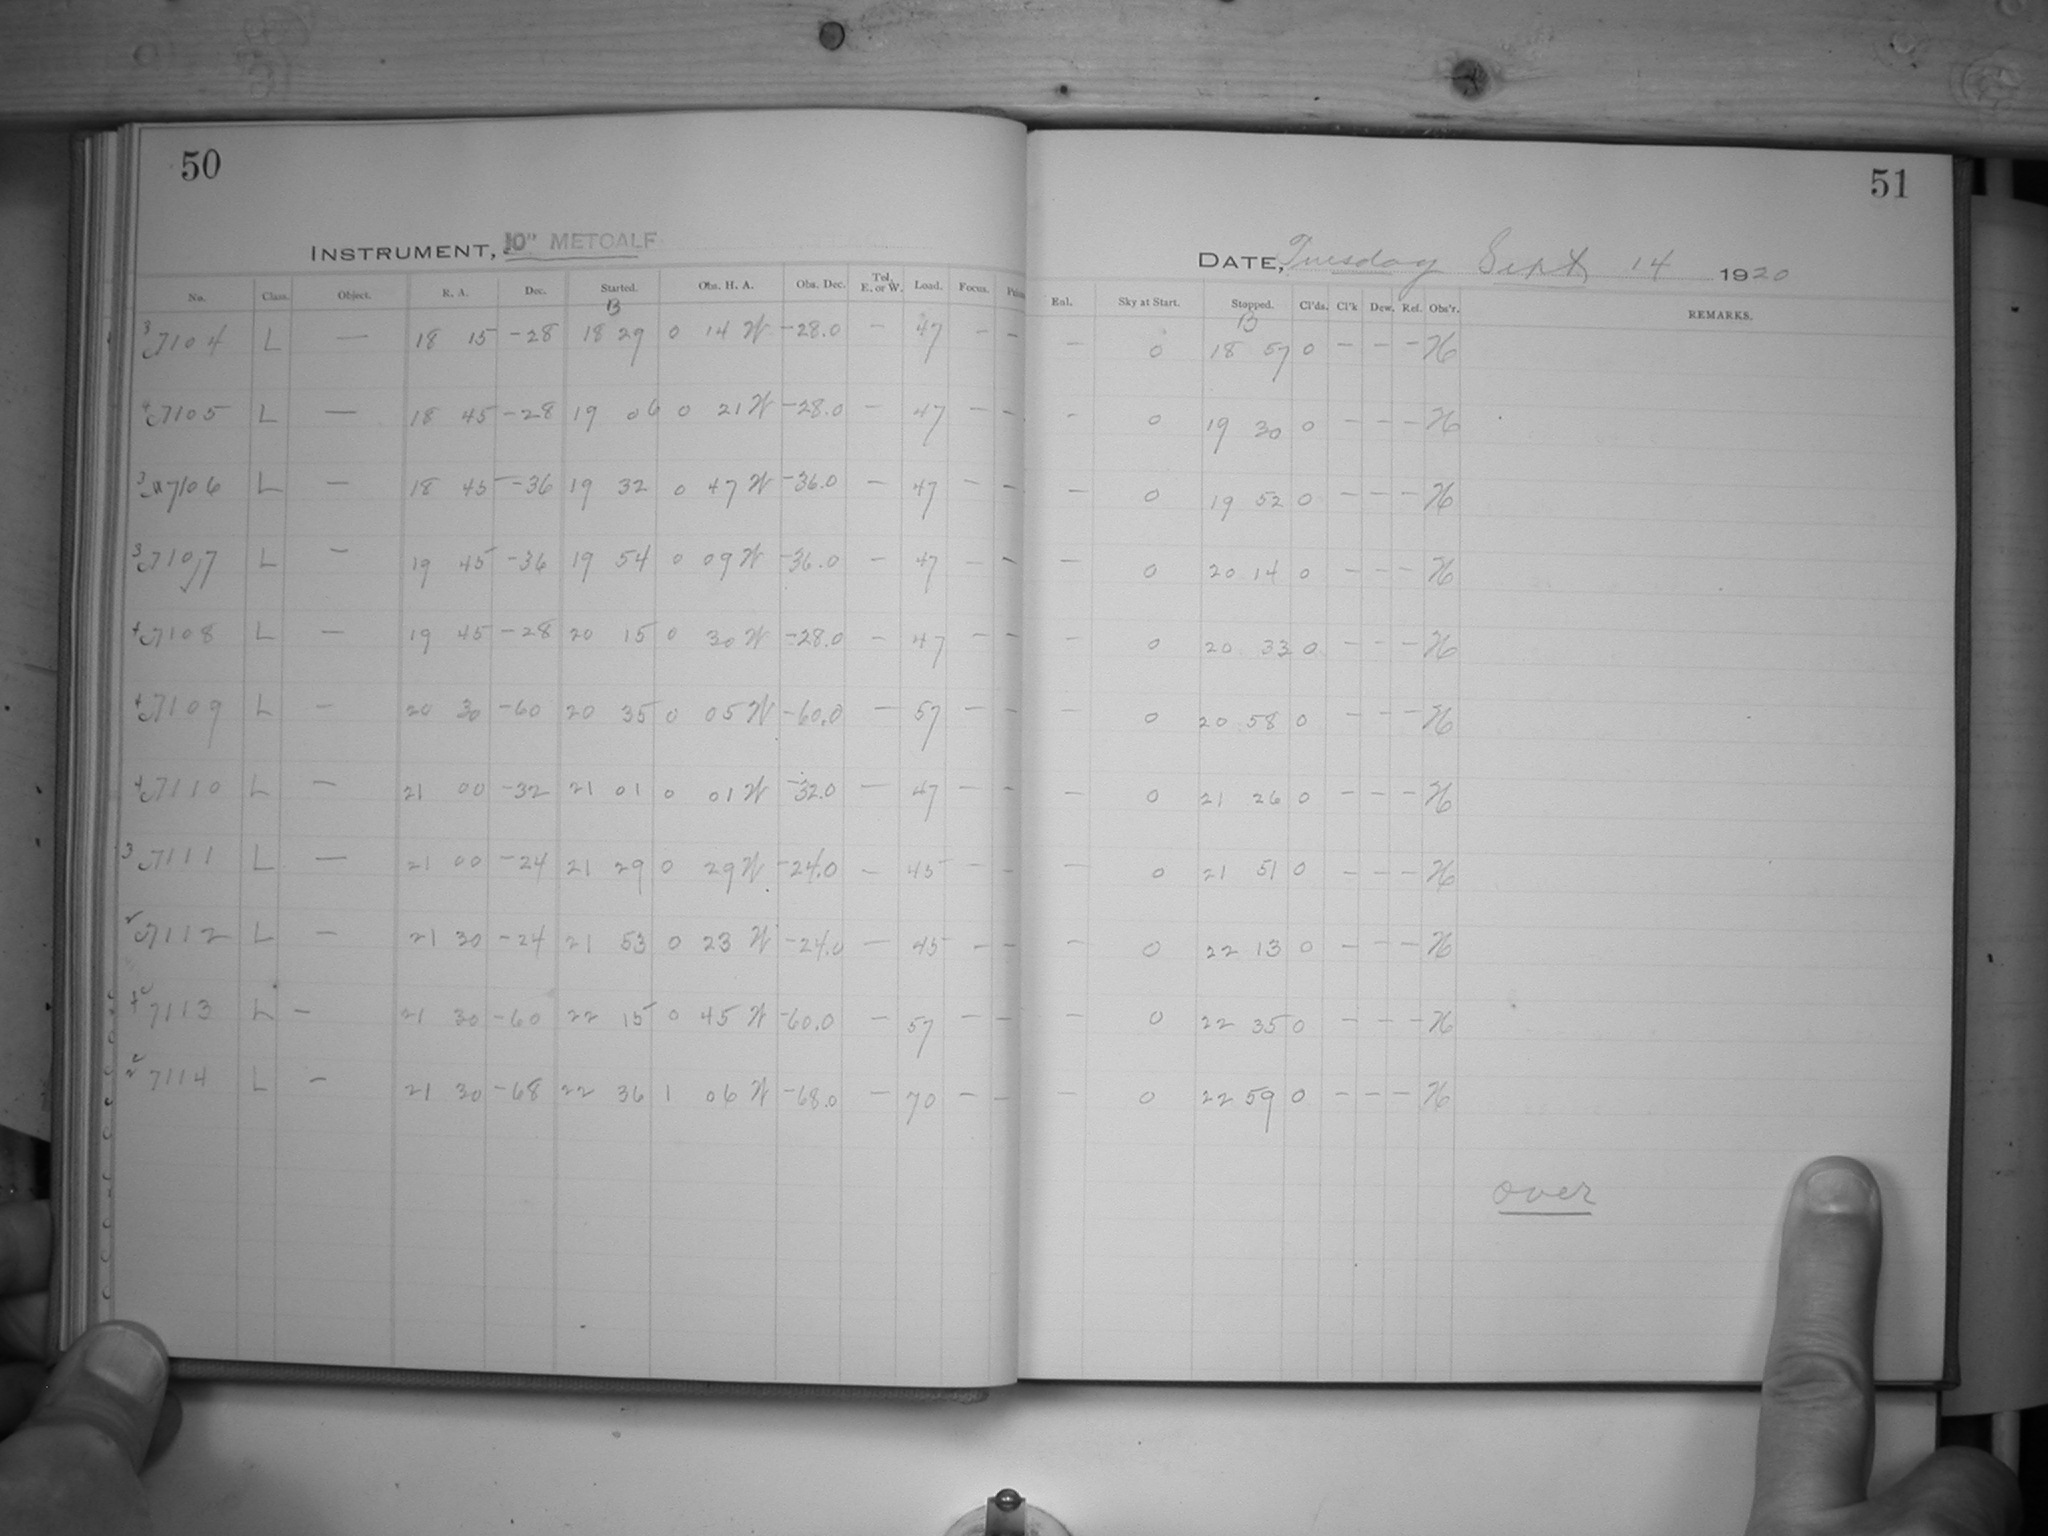 50
INSTRUMENT, 10" METCALF
No. Class. Object. R. A. Dec. Started. Obs. H. A. Obs. Dec. Tel. E. or W. Load. Focus.
B
3 7104 L — 18 15 -28 18 29 0 14 W -28.0 - 47 - -
7105 L — 18 45 -28 19 06 0 21 W -28.0 - 47 - -
3 7106 L — 18 45 -36 19 32 0 47 W -36.0 - 47 - -
3 7107 L — 19 45 -36 19 54 0 09 W -36.0 - 47 - -
7108 L — 19 45 -28 20 15 0 30 W -28.0 - 47 - -
7109 L — 20 30 -60 20 35 0 05 W -60.0 - 57 - -
7110 L — 21 00 -32 21 01 0 01 W -32.0 - 47 - -
3 7111 L — 21 00 -24 21 29 0 29 W -24.0 - 45 - -
7112 L — 21 30 -24 21 53 0 23 W -24.0 - 45 - -
7113 L — 21 30 -60 22 15 0 45 W -60.0 - 57 - -
7114 L — 21 30 -68 22 36 1 06 W -68.0 - 70 - -
51
DATE, Tuesday Sept 14 1920
Eal. Sky at Start. Stopped. Cl'ds. Cl'k Dew. Ref. Obs'r. REMARKS.
B
- 0 18 57 0 - - - H
- 0 19 30 0 - - - H
- 0 19 52 0 - - - H
- 0 20 14 0 - - - H
- 0 20 33 0 - - - H
- 0 20 58 0 - - - H
- 0 21 26 0 - - - H
- 0 21 51 0 - - - H
- 0 22 13 0 - - - H
- 0 22 35 0 - - - H
- 0 22 59 0 - - - H
over